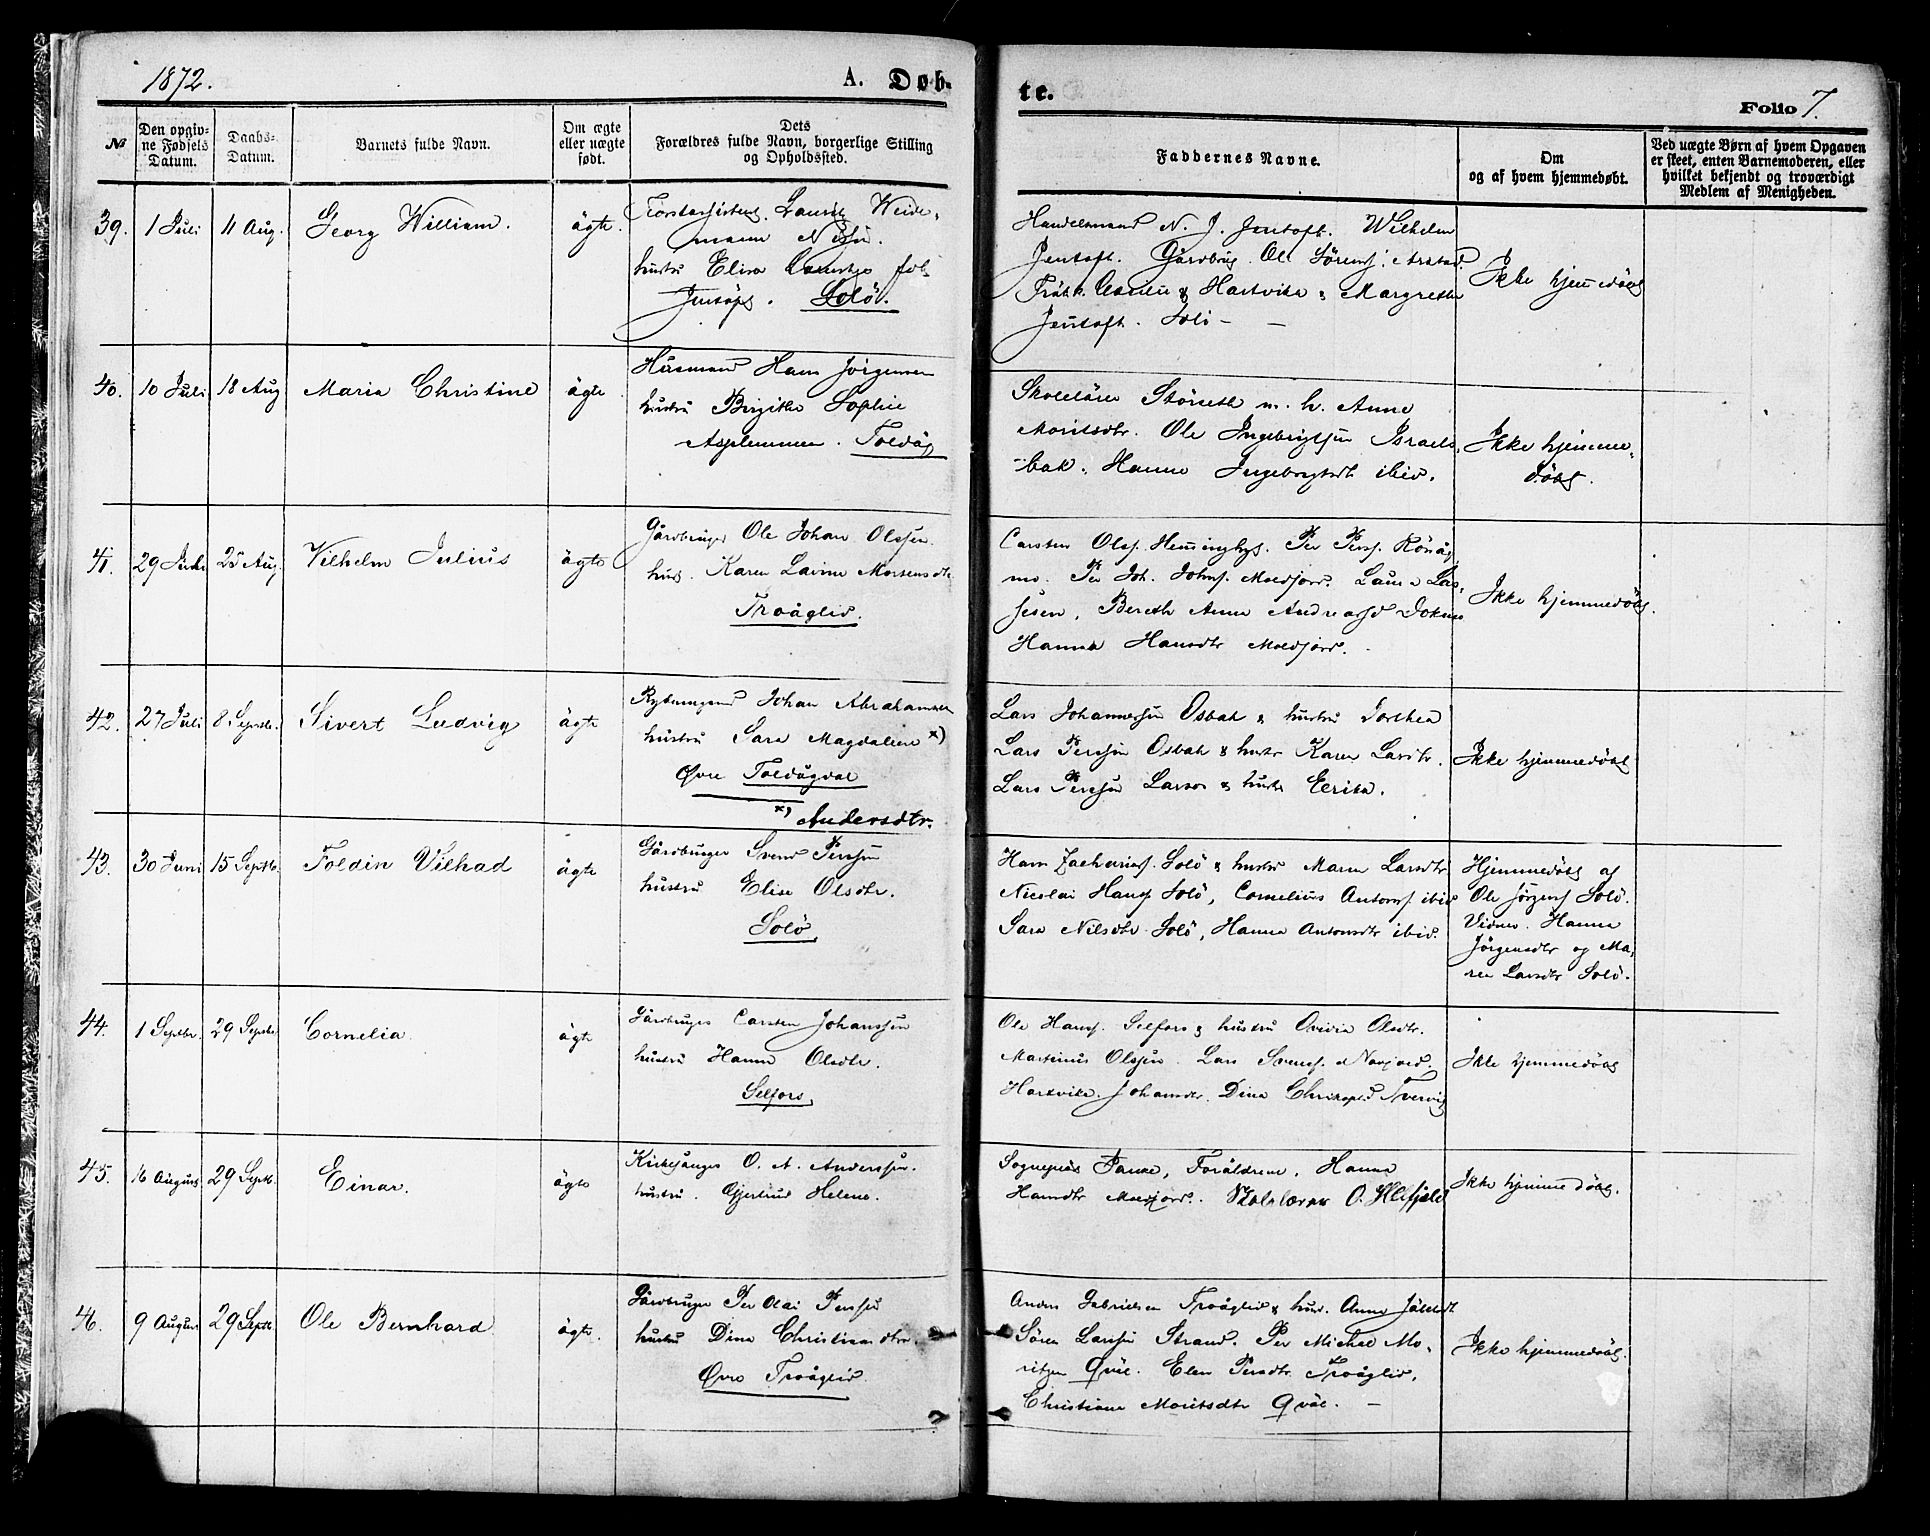 1872.
A. Døb-
te.
Folio 7.
№
Den opgiv-
ne Fødsels
Datum.
Daabs-
Datum.
Barnets fulde Navn.
Om ægte
eller uægte
født.
Dets
Forældres fulde Navn, borgerlige Stilling
og Opholdssted.
Faddernes Navne.
Om
og af hvem hjemmedøbt.
Ved uægte Børn af hvem Opgaven
er skeet, enten Barnemoderen, eller
hvilket bekjendt og troværdigt
Medlem af Menigheden.
39. 1 Juli 11 Aug. Georg William. ägte.
Lauritz Weide-
mann
hustru Elisa
Solö.
Handelsmand N. J. Jentoft. Wilhelm
Jentoft. Gårdbrug. Ol.
Hartvika & Margrethe
Jentoft. Solö
Ikke hjemmedöbt
40. 10 Juli 18 Aug Maria Christine ägte.
Husmand Hans Jörgensen
hustru Birgitte Sophie
Asplemmen. Toldåg
Skolelärer Störseth m. h. Anne
Moritsdtr. Ole Ingebrigtsen Israels-
bak. Hanna Ingebrigtsdt ibid.
Ikke hjemme-
döbt.
41. 29 Juli 25 Aug. Vilhelm Julius ägte
Gårdbruger Ole Johan Olssen
hus. Karen Lavine Mortensdtr
Troåglid.
Carsten Olsf. Per Persf.
Per Joh. Johnf. Moldjord. Las-
sesen, Bereth Anna
Hanna Hansdtr Moldjord.
Ikke hjemmedöbt.
42. 27 Juli 8 Septbr. Sivert Ludvig ägte
Rydningsmd Johan Abrahamsen
hustru Sara Magdalene x)
Øvre Toldågdal
x) Andersdtr.
Lars Johannessen Osbak & hustru Dorthea
Lars Perssen Osbak & hustr Karen Larsdtr.
Lars Perssen Larsos & hustr Erika.
Ikke hjemmedöbt
43. 30 Juni 15 Septbr. Toldin Vilhad ägte
Gårdbruger Svend Perssen
hustru Elise Olsdtr.
Solö
Hans Zachariasf. Solö & hustru Maren Larsdtr
Nicolai Hansf Solö, Cornelius Antonsf ibid
Sara Nilsdtr Solö, Hanna Antonsdtr ibid.
Hjemmedöbt af
Ole Jörgensf Solö.
Vidner. Hanna
Jörgensdtr og Ma-
ren Larsdtr Solö.
44. 1 Septbr. 29 Septbr Cornelia. ägte
Gårdbruger Carsten Johanssen
hustru Hanna Olsdtr.
Selfors.
Ole Hansf. Selfors & hustru Ovidia Olsdtr.
Martinus Olssen. Lars Svendsf.
Hartvike Johansdtr. Dina Tvervig
Ikke hjemmedöbt
45. 16 August 29 Septb. Einar. ägte
Kirkesanger O. A. Anderssen.
hustru. Gjertrud Helene.
Sognepræst Forældrene, Hanna
Hansdtr Moldjord. Skolelærer O.
Ikke hjemmedöbt.
46. 9 August 29 Septbr. Ole Bernhard ägte.
Gårdbruger Per Olai Perssen
hustru Dina Christiansdtr.
Øvre Troåglid.
Anders Gabrielsen Troåglid & hus. Anna
Sören Larssen Strand. Per Michal Mo-
ritzen Qväl. Elen Persdtr Troåglid.
Christiane Moritsdtr Qväl. —
Ikke hjemmedöbt.